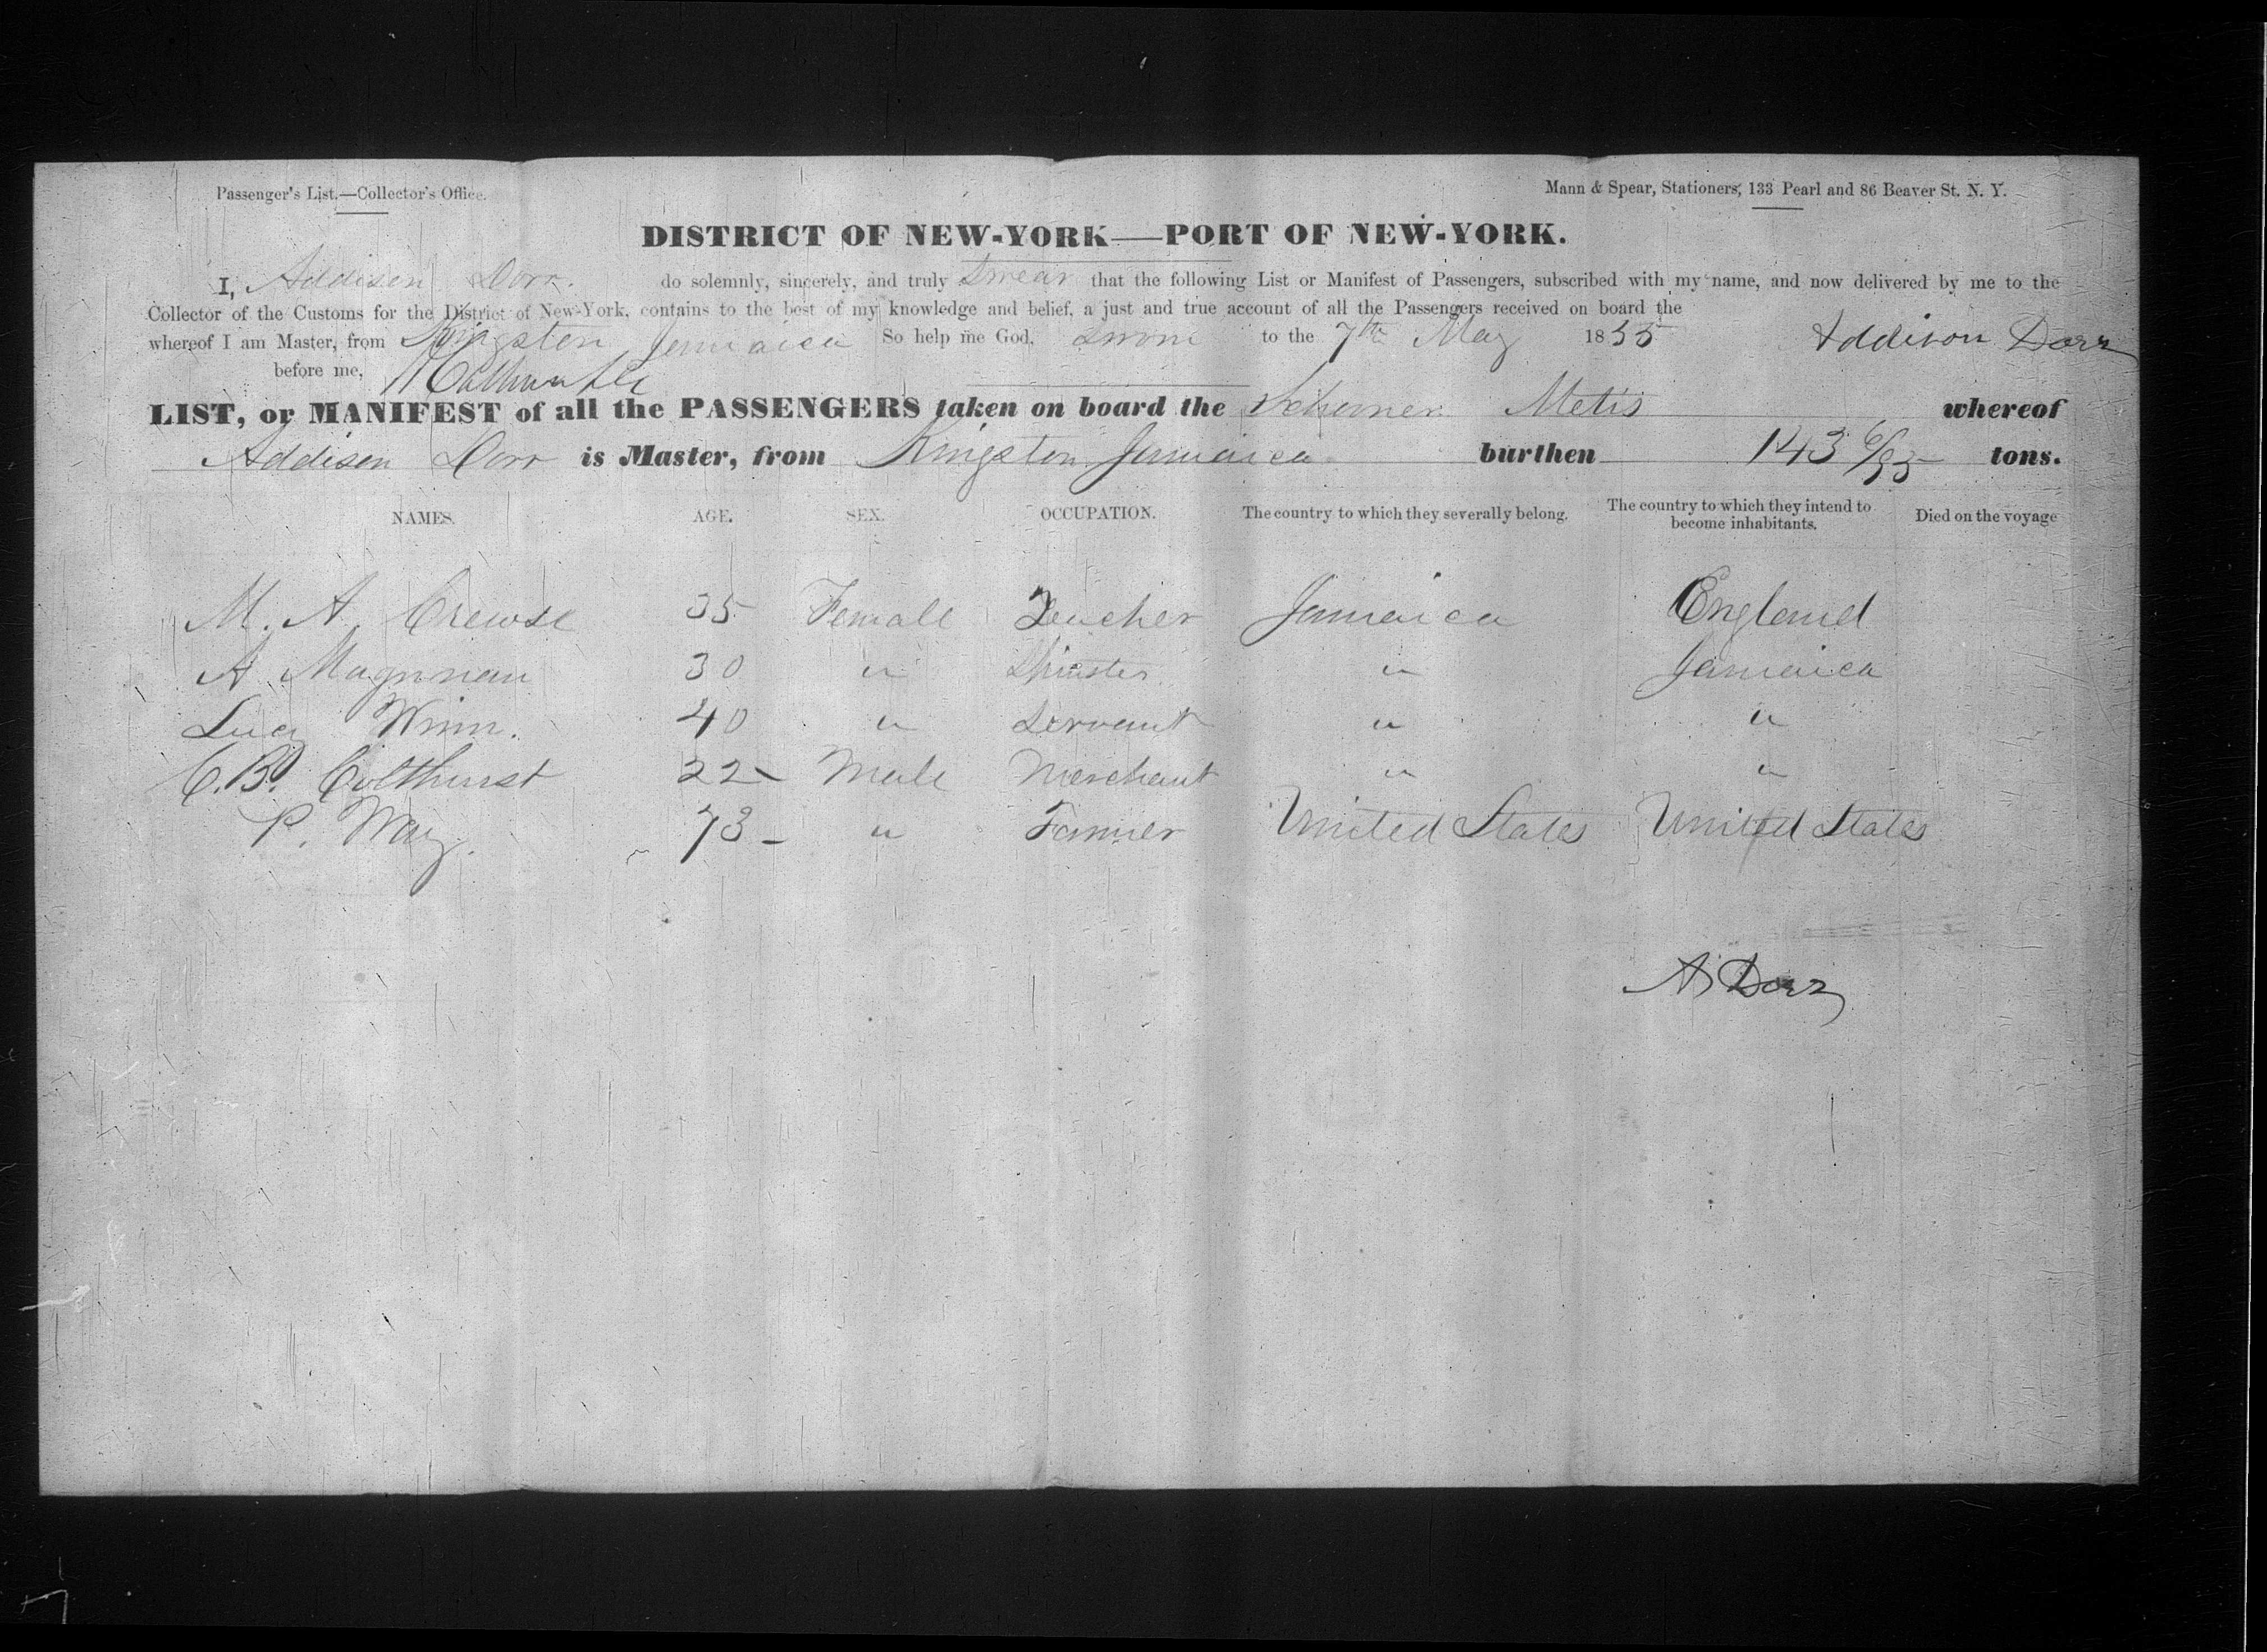 Passenger's List.—Collector's Office.
Mann & Spear, Stationers, 133 Pearl and 86 Beaver St. N. Y.
DISTRICT OF NEW-YORK—PORT OF NEW-YORK.
I, Addison Dorr do solemnly, sincerely, and truly Swear that the following List or Manifest of Passengers, subscribed with my name, and now delivered by me to the
Collector of the Customs for the District of New-York, contains to the best of my knowledge and belief, a just and true account of all the Passengers received on board the
whereof I am Master, from Kingston Jamaica So help me God, Sworn to the 7th May 1855 Addison Dorr
before me,
LIST, or MANIFEST of all the PASSENGERS taken on board the Schooner Metis whereof
Addison Dorr is Master, from Kingston Jamaica burthen 143 6/95 tons.
NAMES. AGE. SEX. OCCUPATION. The country to which they severally belong. The country to which they intend to become inhabitants. Died on the voyage
M. A. Crewse 35 Female Teacher Jamaica England
A 30 " " Jamaica
Lucy Winn. 40 " Servant " "
C. B. Colthurst 22 - Male Merchant " "
P. Way. 73 - " Farmer United States United States
A Dorr